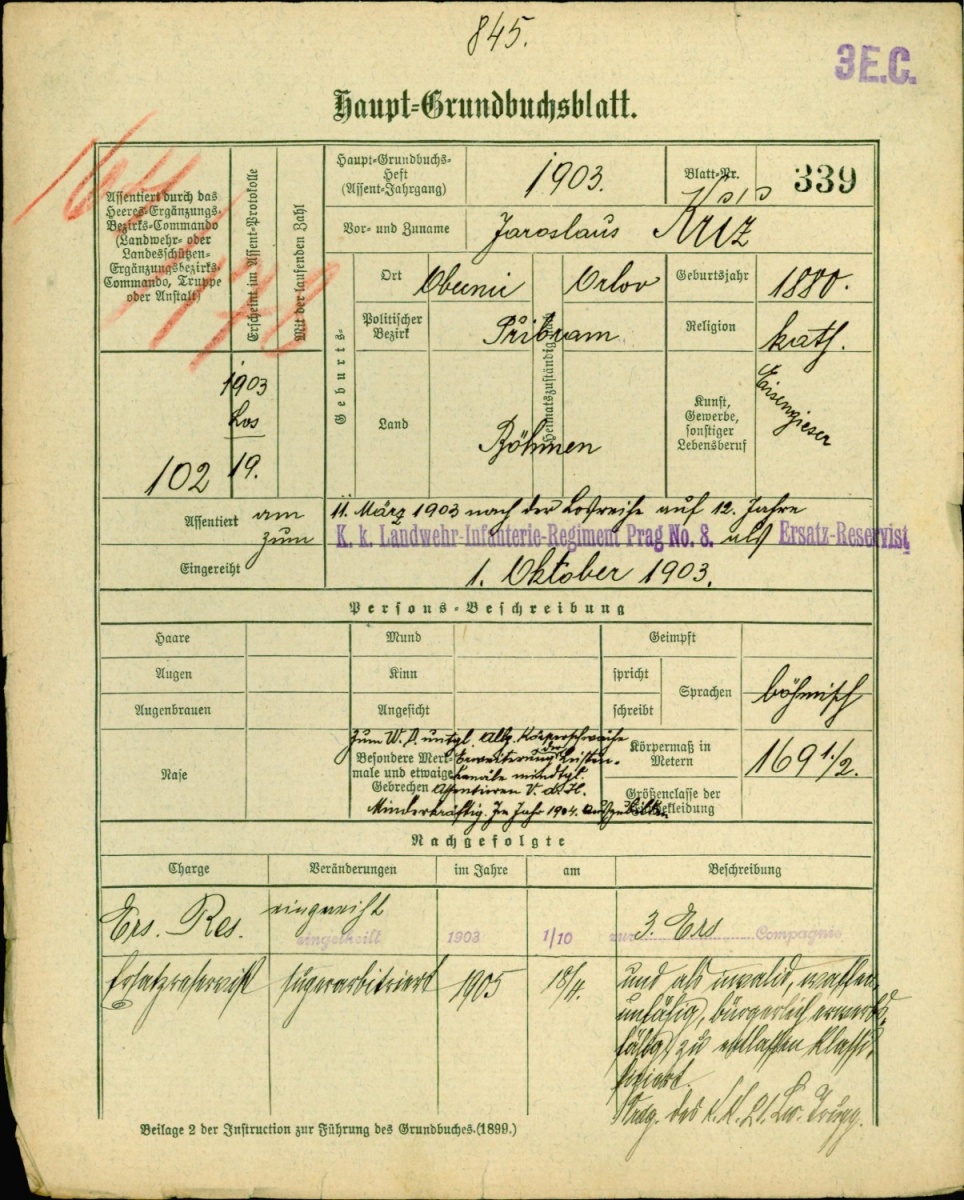 845.
3E.C.
Haupt-Grundbuchsblatt.
Assentiert durch das
Heeres-Ergänzungs-
Bezirks-Commando
(Landwehr- oder
Landesschützen-
Ergänzungsbezirks-
Commando, Truppe
oder Anstalt)
Erscheint im Assent-Protokolle
Mit der laufenden Zahl
Haupt-Grundbuchs-
Heft
(Assent-Jahrgang)
1903.
Blatt-Nr.
339
Vor- und Zuname
Jaroslaus Křiž
Geburts-
Ort
Obecnic
Heimatszuständig
Orlov
Geburtsjahr
1880.
Politischer
Bezirk
Přibram
Religion
kath.
Land
Böhmen
Kunst,
Gewerbe,
sonstiger
Lebensberuf
Eisengieser
102
1903
Los
19.
Assentiert
am
11. März 1903 nach der Losreihe auf 12 Jahre
zum
K. k. Landwehr-Infanterie-Regiment Prag No. 8. als Ersatz-Reservist
Eingereiht
1. Oktober 1903.
Persons-Beschreibung
Haare
Mund
Geimpft
Augen
Kinn
spricht
Sprachen
böhmisch
Augenbrauen
Angesicht
schreibt
Nase
Besondere Merk-
male und etwaige
Gebrechen
Zum W. D. untgl. Allg. Körperschwäche
Erweiterung der Leisten-
kanäle mindtgl.
Assentieren V. d. H.
Minderkräftig. Im Jahr 1904. Ausgebildet
Körpermaß in
Metern
169 1/2.
Größenclasse der
bekleidung
Nachgefolgte
Charge
Veränderungen
im Jahre
am
Beschreibung
Ers. Res.
eingereiht
eingetheilt
1903
1/10
zur 3. Ers Compagnie
Ersatzreservist
superarbitriert
1905
18/4.
und als invalid, waffen
unfähig, bürgerlich erwerbs
fähig, zu entlassen klassi
fiziert.
des k. k.
Beilage 2 der Instruction zur Führung des Grundbuches. (1899.)